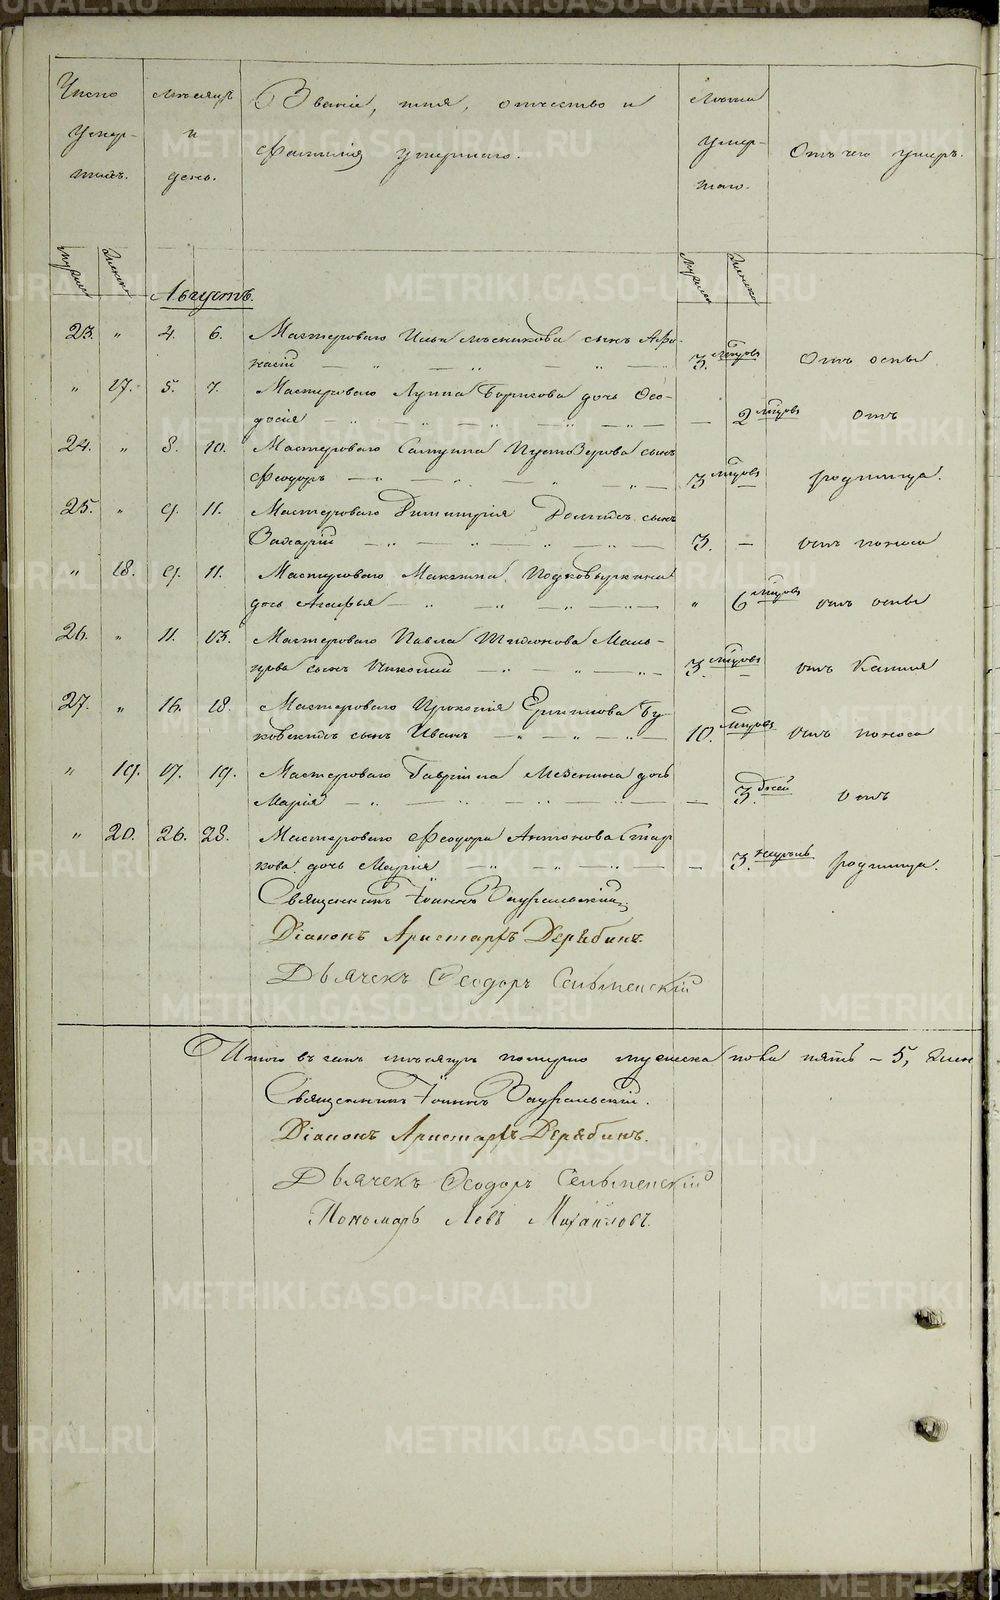 Число умер-шихъ.
Мѣсяцъ и день.
Званіе, имя, отчество и фамилія умершаго.
Лѣта умер-шаго.
Отъ чего умеръ.
мужеск женск
мужеск женск
Августъ.
23. „ 4. 6. Мастероваго Ильи Мясникова сынъ Афа-
насій — „ — „ — „ — 3. мѣсцовъ Отъ оспы
„ 17. 5. 7. Мастероваго Луппа Борисова дочь Ѳео-
досія — „ — „ — „ — 2 мѣсцовъ отъ
24. „ 8. 10. Мастероваго сынъ
Феодоръ — „ — „ — „ — 3 мѣсцовъ родимца.
25. „ 9. 11. Мастероваго Димитрія сынъ
Захарій — „ — „ — „ — 3. — отъ поноса
„ 18. 9. 11. Мастероваго Максима Подковыркина
дочь Агафья — „ — „ — „ — „ 6 мѣсцовъ отъ оспы
26. „ 11. 13. Мастероваго Павла Тихонова Маль-
цова сынъ — „ — „ — 3. мѣсцовъ отъ кашля
27. „ 16. 18. Мастероваго Прокопія Бу-
сынъ Иванъ — „ — „ — 10. мѣсцовъ отъ поноса
„ 19. 17. 19. Мастероваго Гавріила Мезенина дочь
Марія — „ — „ — „ — 3. дней отъ
„ 20. 26. 28. Мастероваго Феодора Антонова Стар
кова дочь Марія — „ — „ — „ — 3. недѣль родимца.
Священникъ Іоаннъ Зауральскій
Діаконъ Аристархъ Дерябинъ.
Дьячекъ Ѳеодоръ Селѣменскій
Итого въ семъ мѣсяцѣ померло мужеска пола пять – 5, жен
Священникъ Іоаннъ Зауральскій.
Діаконъ Аристархъ Дерябинъ.
Дьячекъ Ѳеодоръ Селѣменскій
Пономарь Левъ Михайловъ.
METRIKI.GASO-URAL.RU